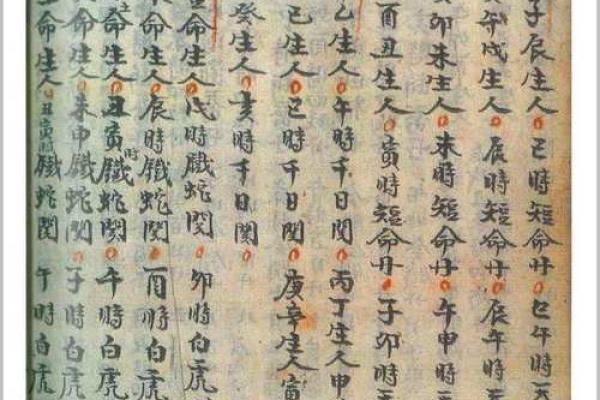 子辰生人 巳時短命廾 巳午時
午戌生人 辰時短命廾 辰午時
卯未生人 未時短命廾 午申時
酉丑生人 寅時短命廾 子卯時
乙生人 午時千日関 丙丁生人申
己生人 巳時千日関 庚辛生人寅
癸生人 亥時千日関
命生人 戌時鐵蛇関 卯時白虎
命生人 辰時鐵蛇関 酉時白虎
命生人 丑寅時鐵蛇関 午時白虎
命生人 未申鐵蛇関 子時白虎
命生人 丑寅鐵蛇関 午時白虎